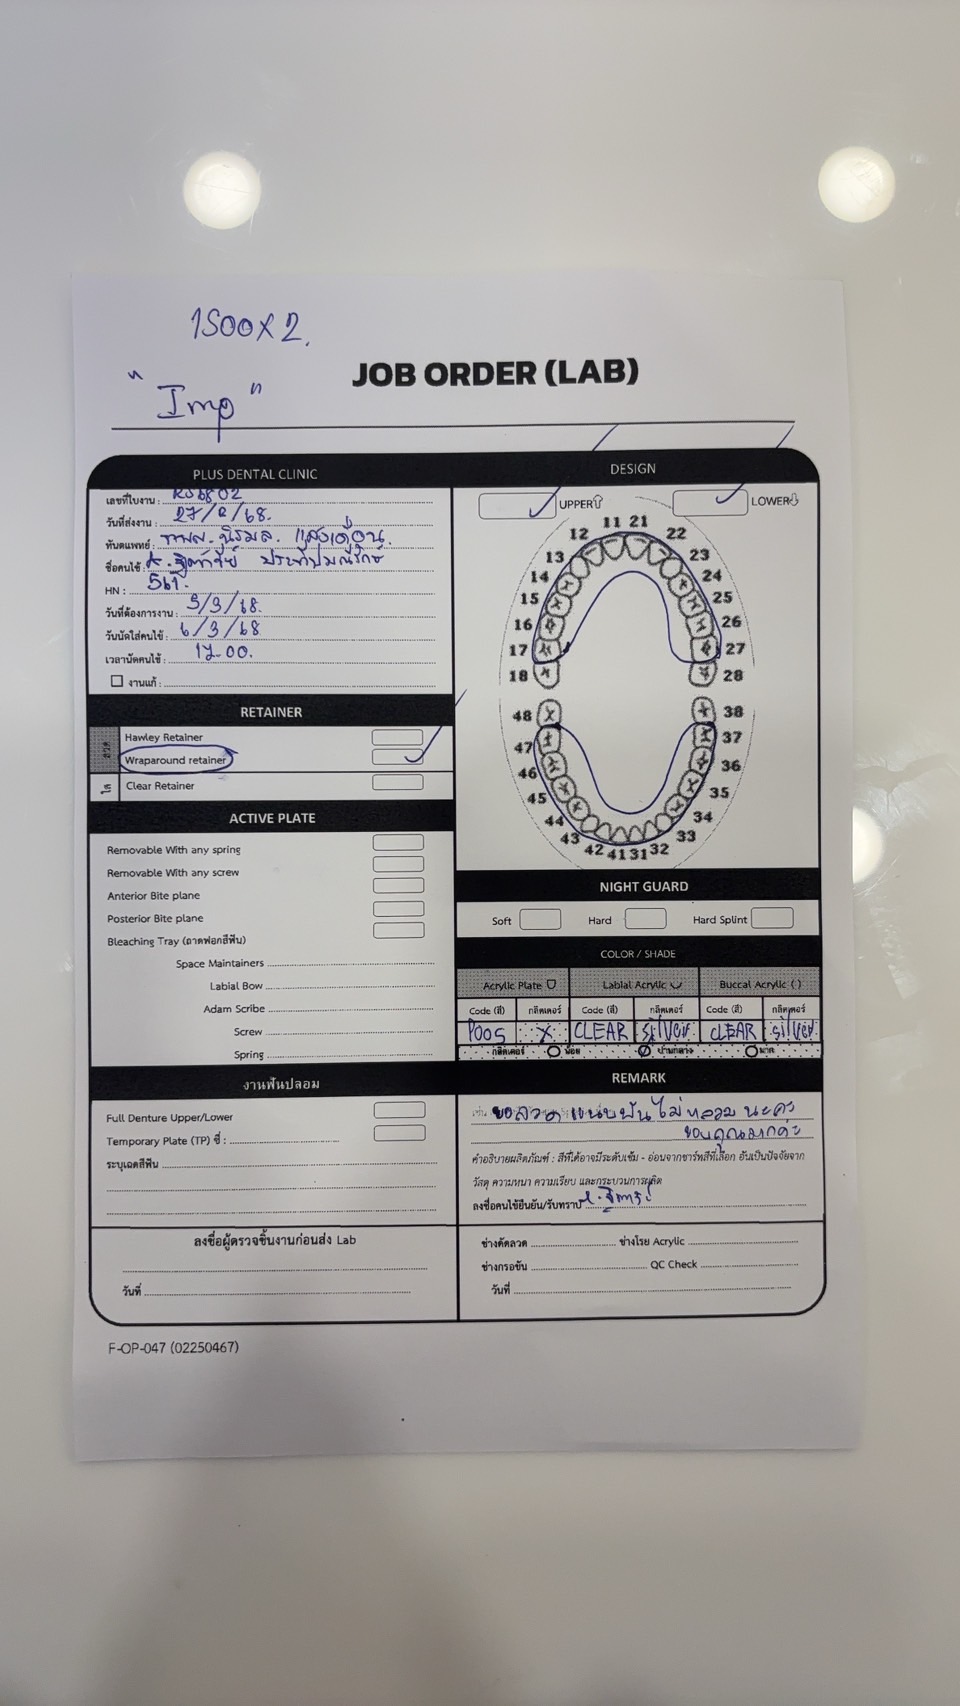 1500 X 2.
"Imp"
JOB ORDER (LAB)
PLUS DENTAL CLINIC
เลขที่ใบงาน :
วันที่ส่งงาน : 27/2/68.
ทันตแพทย์ : ทพญ. นิรมล. แสงเดือน.
ชื่อคนไข้ :
HN : 561.
วันที่ต้องการงาน : 5/3/68.
วันนัดใส่คนไข้ : 6/3/68
เวลานัดคนไข้ : 17.00.
งานแก้ :
RETAINER
ลวด
Hawley Retainer
Wraparound retainer
ใส
Clear Retainer
ACTIVE PLATE
Removable With any spring
Removable With any screw
Anterior Bite plane
Posterior Bite plane
Bleaching Tray (ถาดฟอกสีฟัน)
Space Maintainers
Labial Bow
Adam Scribe
Screw
Spring
งานฟันปลอม
Full Denture Upper/Lower
Temporary Plate (TP) ซี่ :
ระบุเฉดสีฟัน
ลงชื่อผู้ตรวจชิ้นงานก่อนส่ง Lab
วันที่
DESIGN
UPPER LOWER
11 21
12 22
13 23
14 24
15 25
16 26
17 27
18 28
48 38
47 37
46 36
45 35
44 34
43 33
42 41 31 32
NIGHT GUARD
Soft Hard Hard Splint
COLOR / SHADE
Acrylic Plate Labial Acrylic Buccal Acrylic ( )
Code (สี) กลิตเตอร์ Code (สี) กลิตเตอร์ Code (สี) กลิตเตอร์
P005 X CLEAR silver CLEAR silver
กลิตเตอร์ น้อย ปานกลาง มาก
REMARK
ขอลวดแนบฟันไม่หลวมนะคะ
ขอบคุณมากค่ะ
คำอธิบายผลิตภัณฑ์ : สีที่ได้อาจมีระดับเข้ม - อ่อนจากชาร์ทสีที่เลือก อันเป็นปัจจัยจาก
วัสดุ ความหนา ความเรียบ และกระบวนการผลิต
ลงชื่อคนไข้ยืนยัน/รับทราบ
ช่างดัดลวด ช่างโรย Acrylic
ช่างกรอขัน QC Check
วันที่
F-OP-047 (02250467)